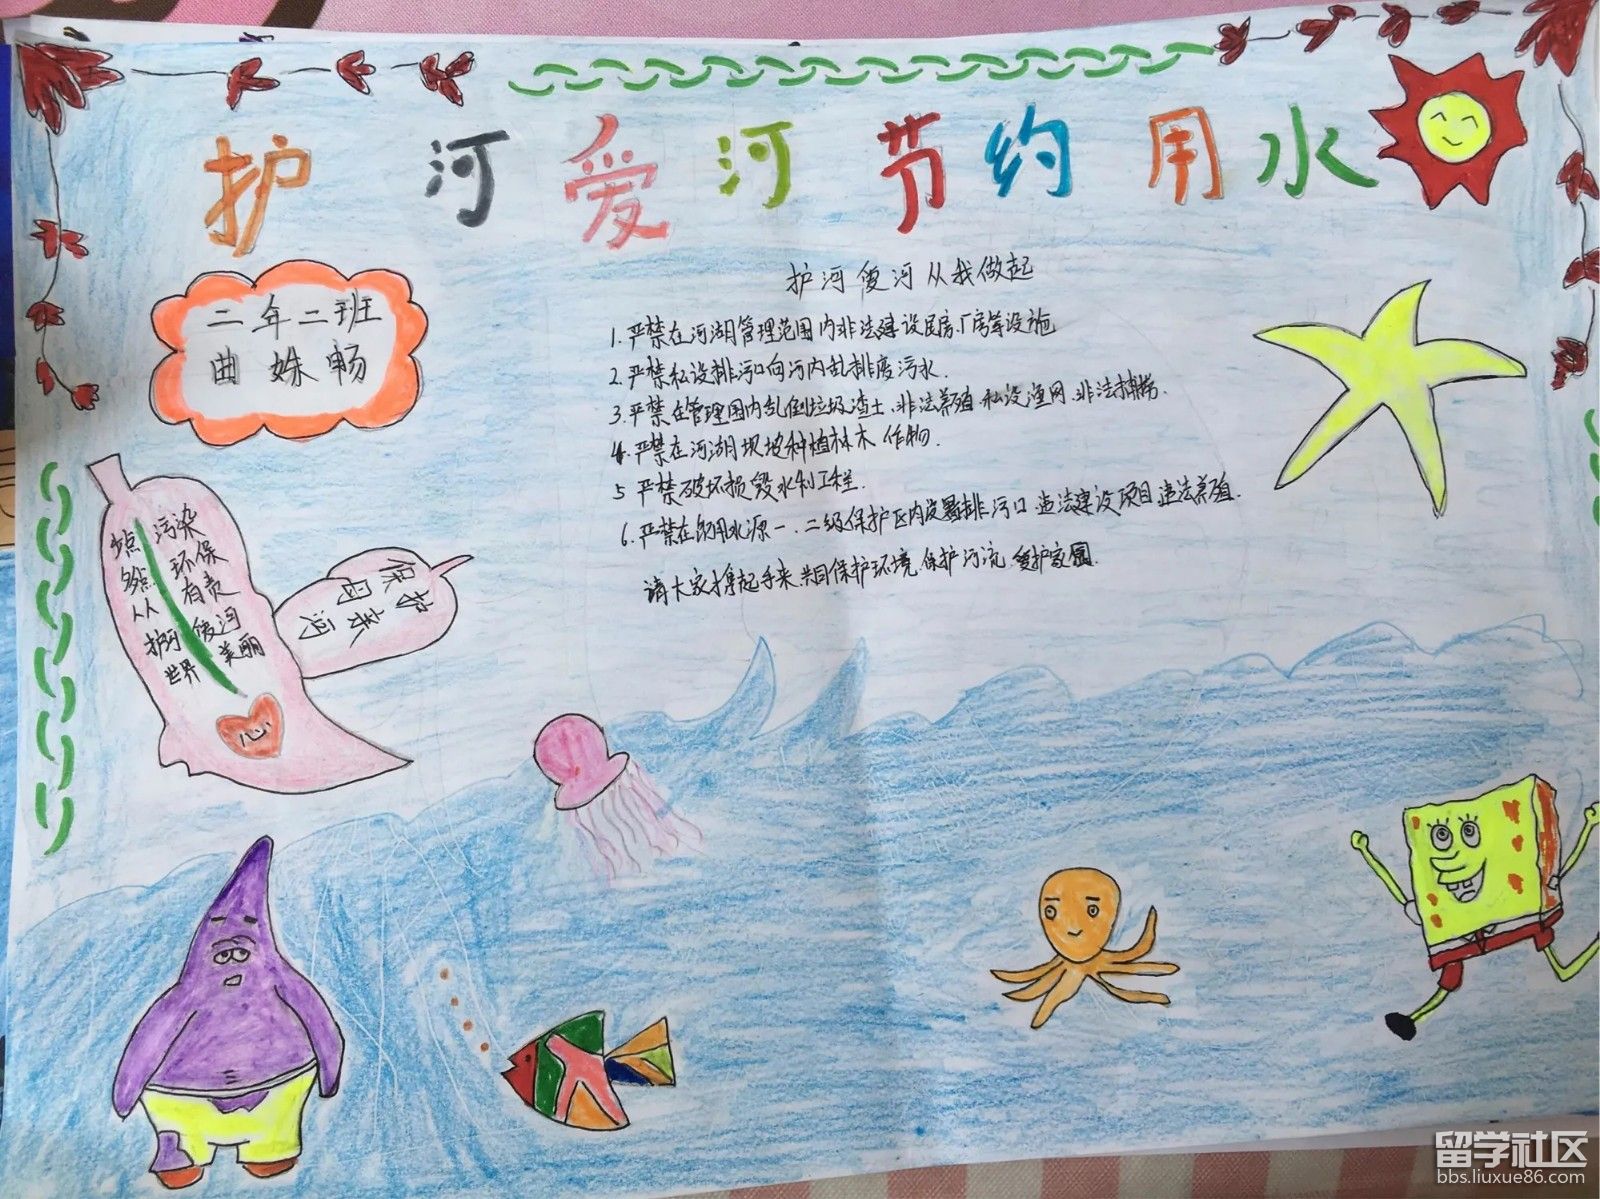 护河爱河节约用水
二年二班
曲姝畅
护河爱河从我做起
1.严禁在河湖管理范围内非法建设居房厂房等设施
2.严禁私设排污口向河内乱排废污水.
3.严禁在管理围内乱倒垃圾渣土、非法养殖、私设渔网、非法捕捞.
4.严禁在河湖坝坡种植林木 作物.
5 严禁破坏损毁水利工程.
6.严禁在饮用水源一、二级保护区内设置排污口 违法建设项目 违法养殖.
请大家撑起手来,共同保护环境,保护河流,爱护家园.
少点 污染
多点 环保
人人 有责
护河 爱河
世界 美丽
保护
母亲
河
心
留学社区
bbs.liuxue86.com